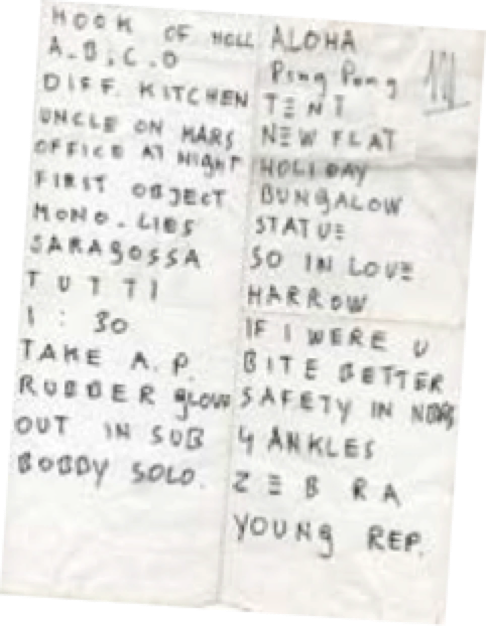 HOOK OF HOLL
A.B.C.D
DIFF. KITCHEN
UNCLE ON MARS
OFFICE AT NIGHT
FIRST OBJECT
MONO-LIES
SARAGOSSA
TUTTI
1:30
TAKE A.P.
RUBBER glove
OUT IN SUB
BOBBY SOLO.
ALOHA
Ping Pong
TENT
NEW FLAT
HOLIDAY
BUNgALOW
STATUE
SO IN LOVE
HARROW
IF I WERE U
BITE BETTER
SAFETY IN
4 ANKLES
ZEBRA
YOUNg REP.